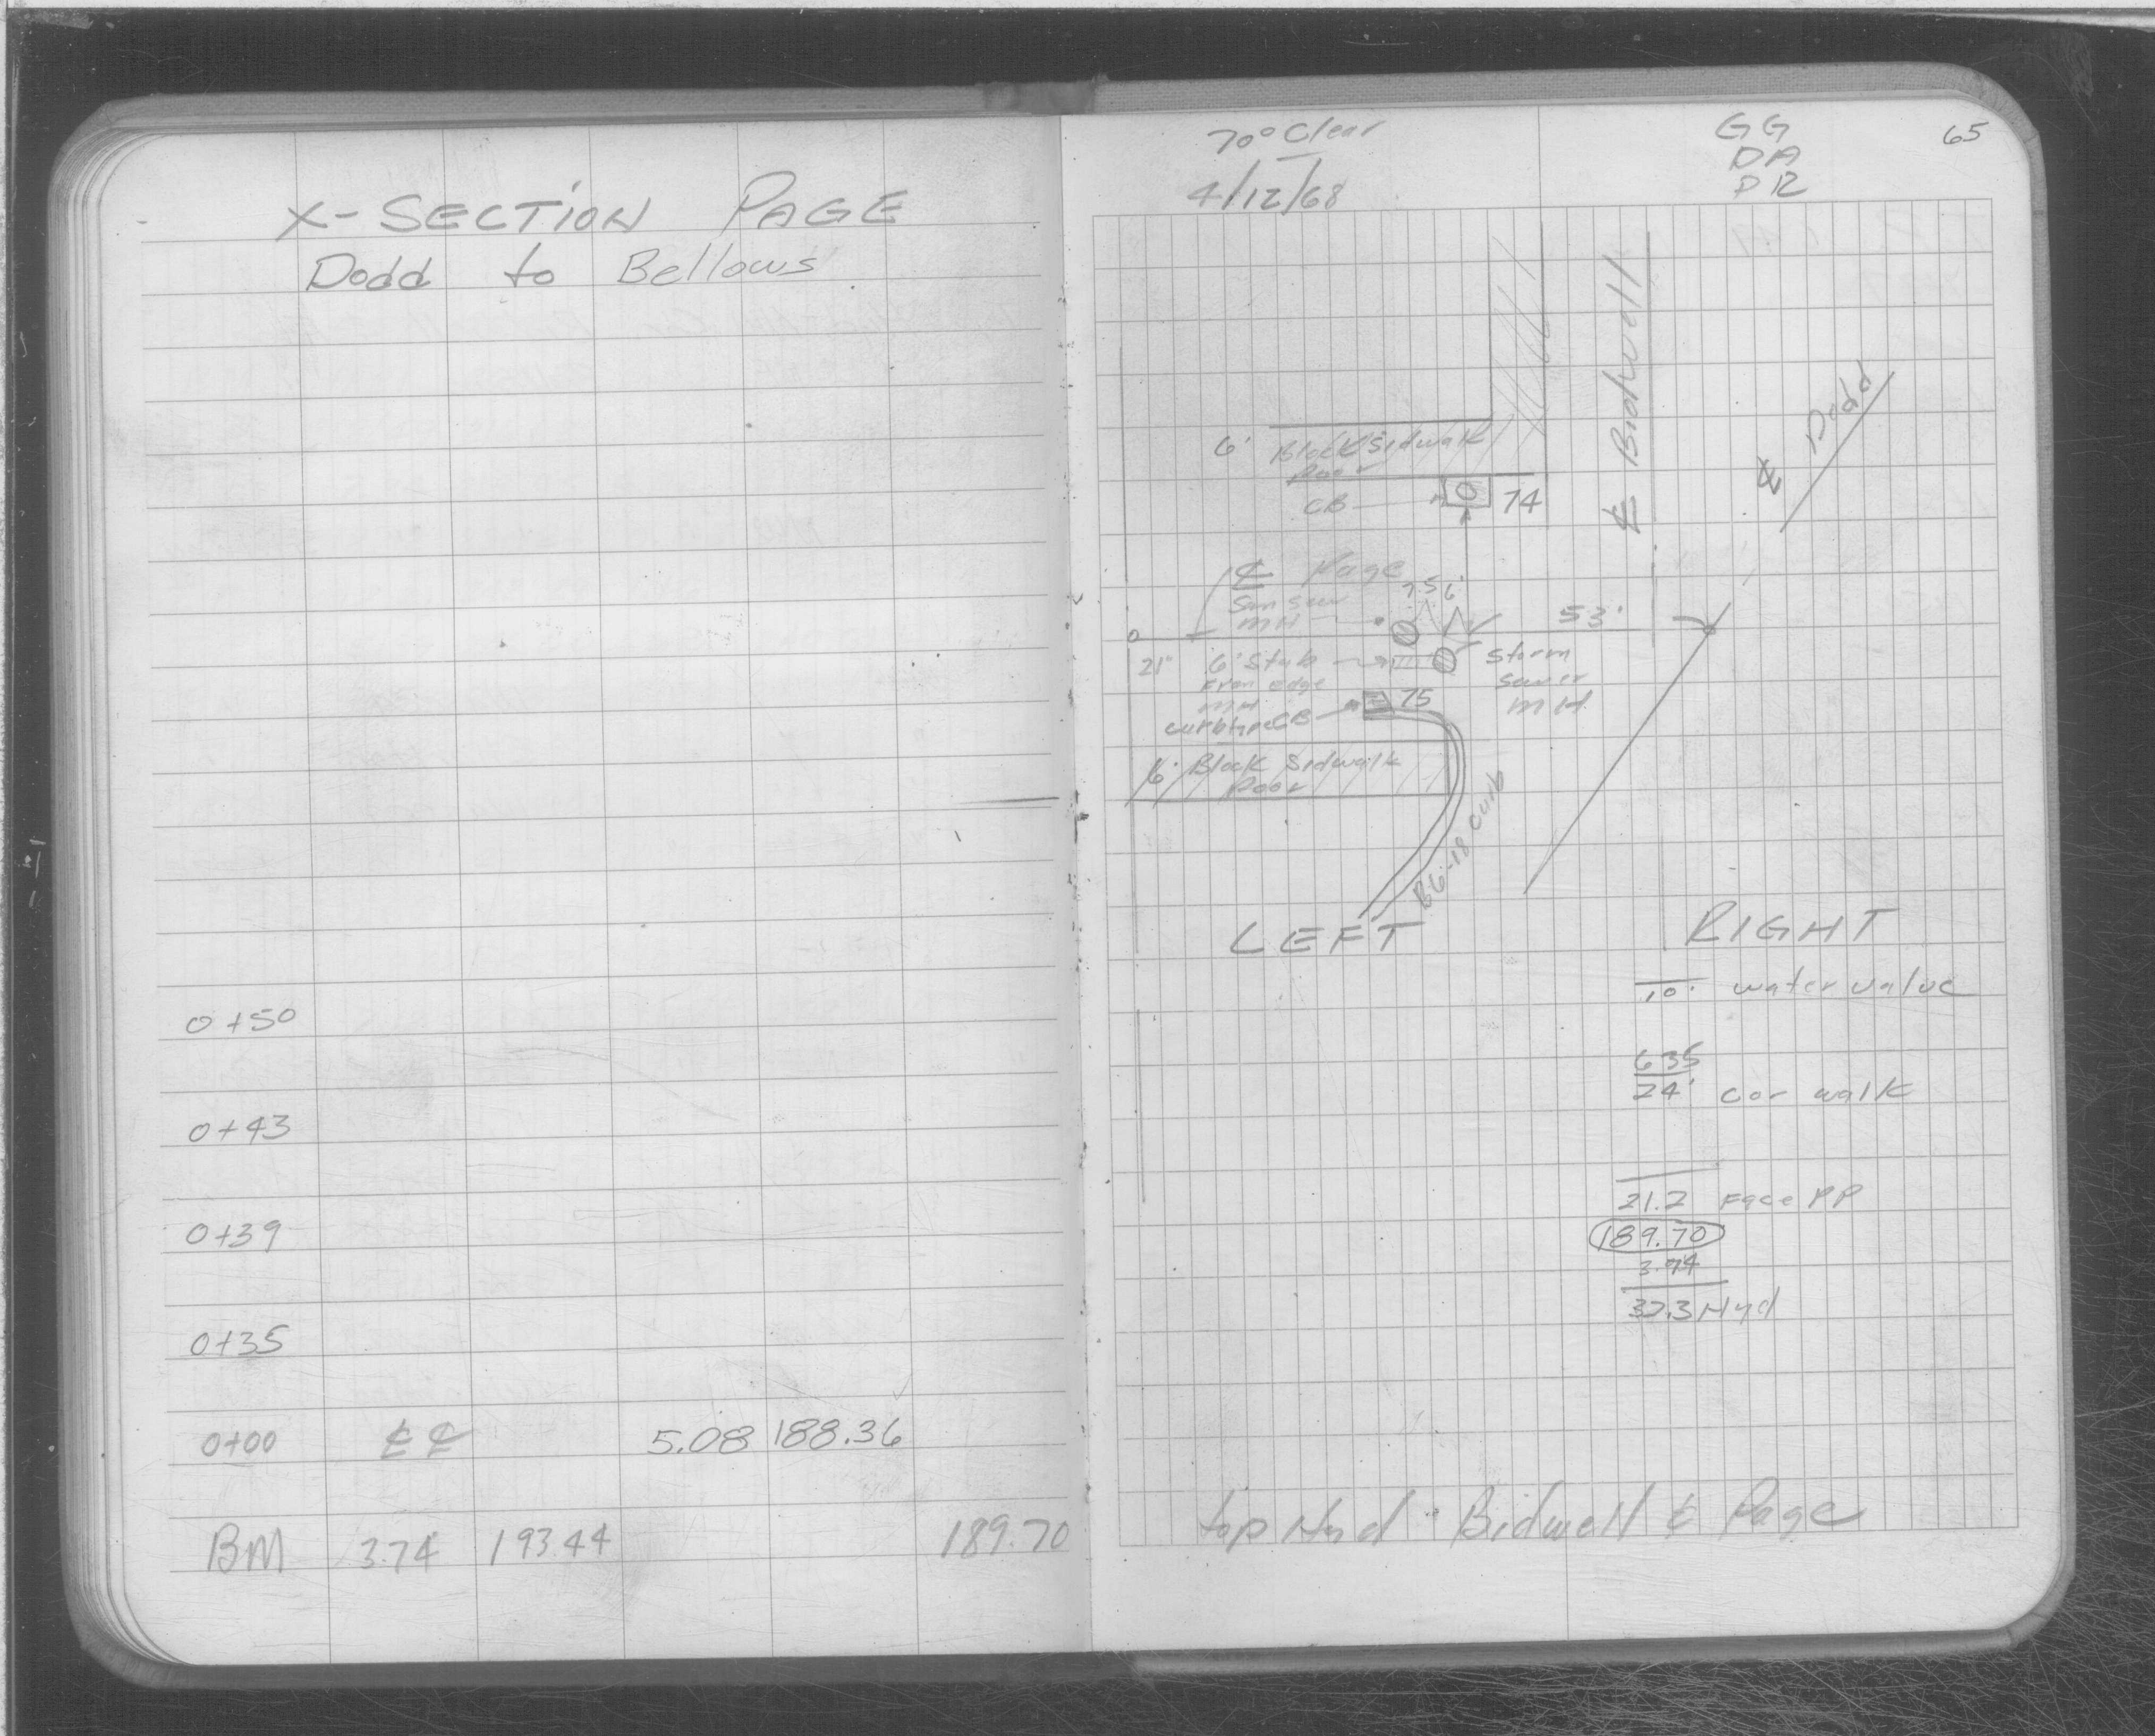 X-SECTION PAGE
Dodd to Bellows
0+50
0+43
0+39
0+35
0+00 ℄ ℄ 5.08 188.36
BM 3.74 193.44 189.70
70° Clear
4/12/68
GG
DA
PR
65
℄ Bidwell
℄ Dodd
6' Block Sidwalk
Poor
CB
74
℄ Page
San Sewr
MH
7.5 6'
53'
21"
6' Stub
From Edge
MH
Storm
Sewer
MH
curb type CB
75
6' Block Sidwalk
Poor
B6-18 Curb
LEFT RIGHT
10' water valve
635
24' cor walk
21.2 Face PP
189.70
3.74
32.3 Hyd
top Hyd Bidwell & Page